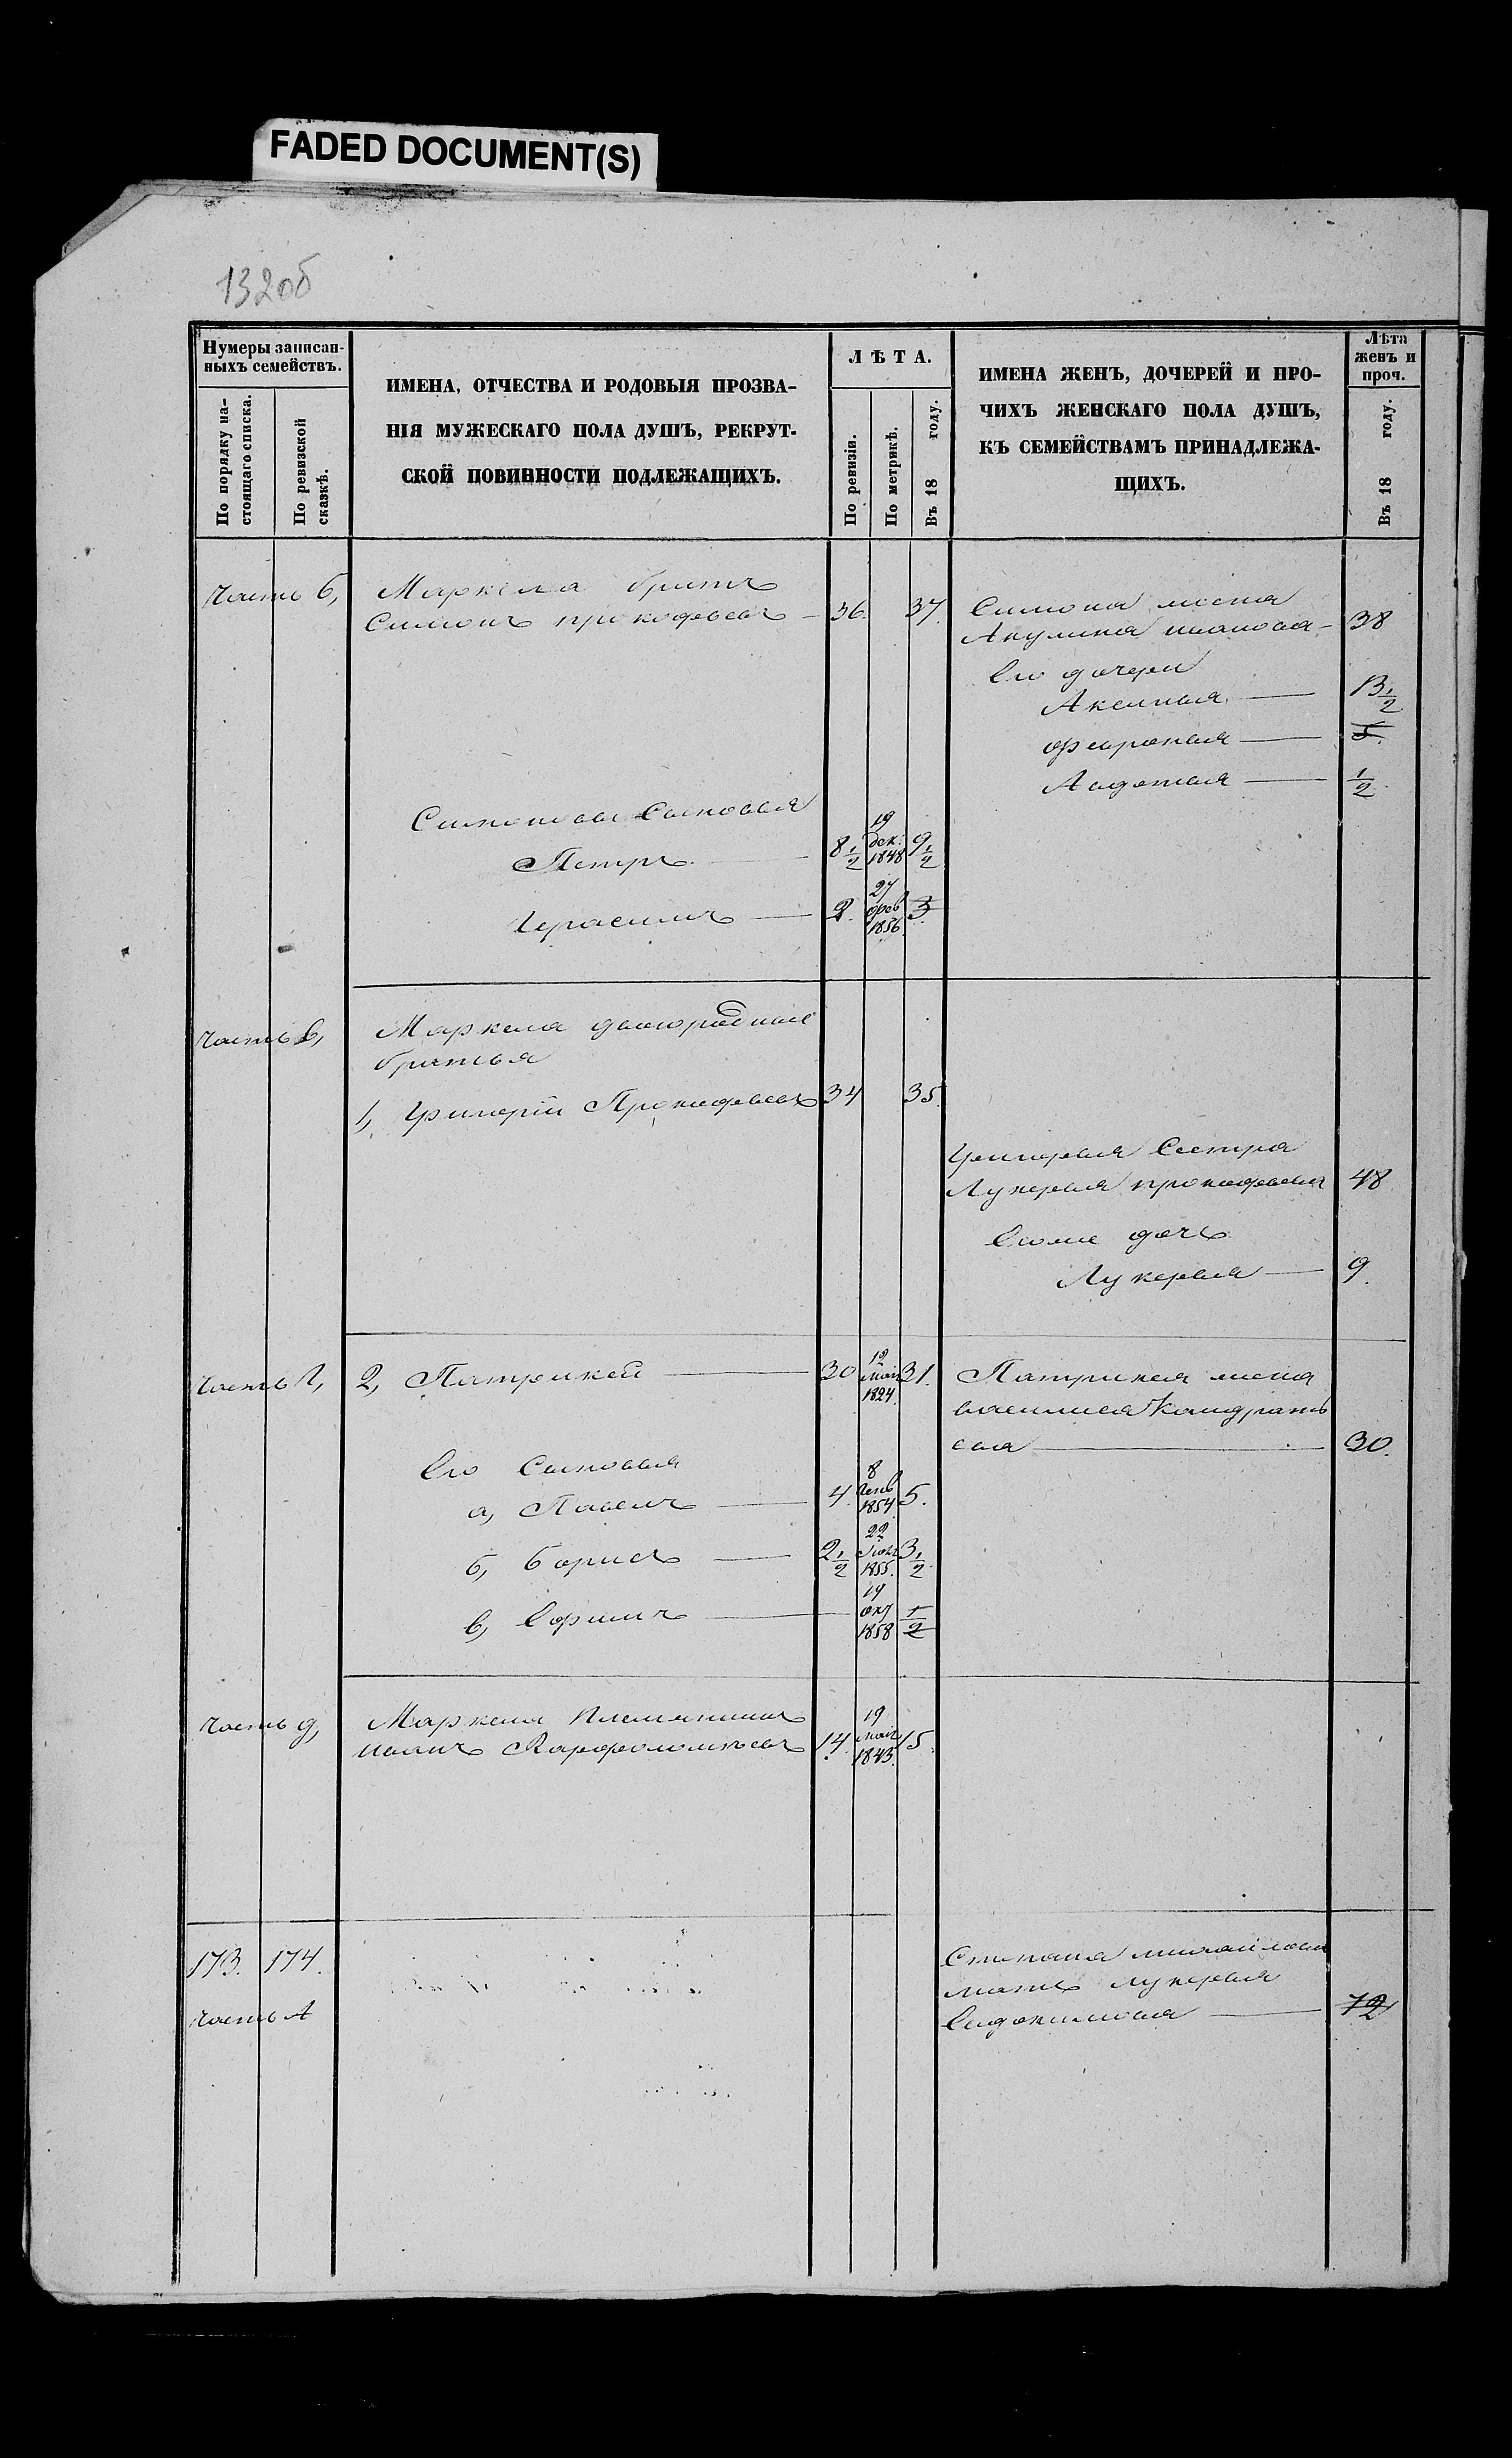 FADED DOCUMENT(S)
132об
Нумеры записан-
ныхъ семействъ.
По порядку на-
стоящаго списка.
По ревизской
сказкѣ.
ИМЕНА, ОТЧЕСТВА И РОДОВЫЯ ПРОЗВА-
НІЯ МУЖЕСКАГО ПОЛА ДУШЪ, РЕКРУТ-
СКОЙ ПОВИННОСТИ ПОДЛЕЖАЩИХЪ.
ЛѢТА.
По ревизіи.
По метрикѣ.
Въ 18 году.
ИМЕНА ЖЕНЪ, ДОЧЕРЕЙ И ПРО-
ЧИХЪ ЖЕНСКАГО ПОЛА ДУШЪ,
КЪ СЕМЕЙСТВАМЪ ПРИНАДЛЕЖА-
ЩИХЪ.
Лѣта
женъ и
проч.
Въ 18 году.
Часть б, Маркела братъ
Симонъ прокофьевъ — 36. 37.
Симона жена
Акулина иванова — 38
Его дочери
Аксинья — 13 1/2
Февронья — 5.
Авдотья — 1/2
Симоновы Сыновья
Петръ — 8 1/2 19 дек. 1848 9 1/2
Герасимъ — 2. 27 фев 1856. 3.
Часть в, Маркела двоюродные
братья
1, Григорій Прокофьевъ 34 35.
Григорья Сестра
Лукерья прокофьева 48
‎дочь
Лукерья — 9.
Часть г, 2, Патрикей — 30 12 мая 1824. 31.
Патрикея жена
василиса Кондрать
ева — 30.
Его Сыновья
а, Павелъ — 4. 8 Генв 1854. 5.
б, Борисъ — 2 1/2 22 1855. 3 1/2
в, Ефимъ — 19 окт 1858 1/2
Часть д, Маркела племянникъ
иванъ Варфоломѣевъ 14. 19 мая 1843. 15.
173. 174.
Часть А
Степана михайлова
мать лукерья
Евдокимова — 72